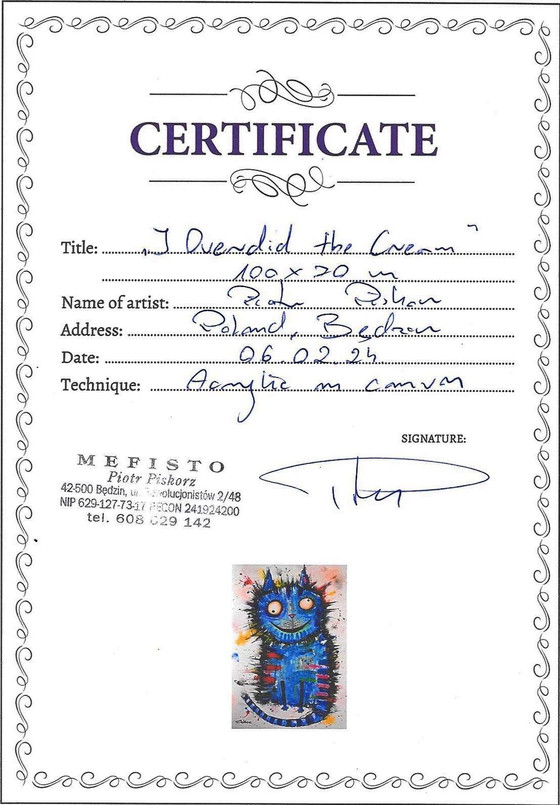 CERTIFICATE
Title: „I Overdid the Cream"
100 x 70 cm
Name of artist: Piotr Piskorz
Address: Poland, Będzin
Date: 06.02.24
Technique: Acrylic on canvas
SIGNATURE:
MEFISTO
Piotr Piskorz
42-500 Będzin, ul. 2/48
NIP 629-127-73-17 REGON 241924200
tel. 608 029 142